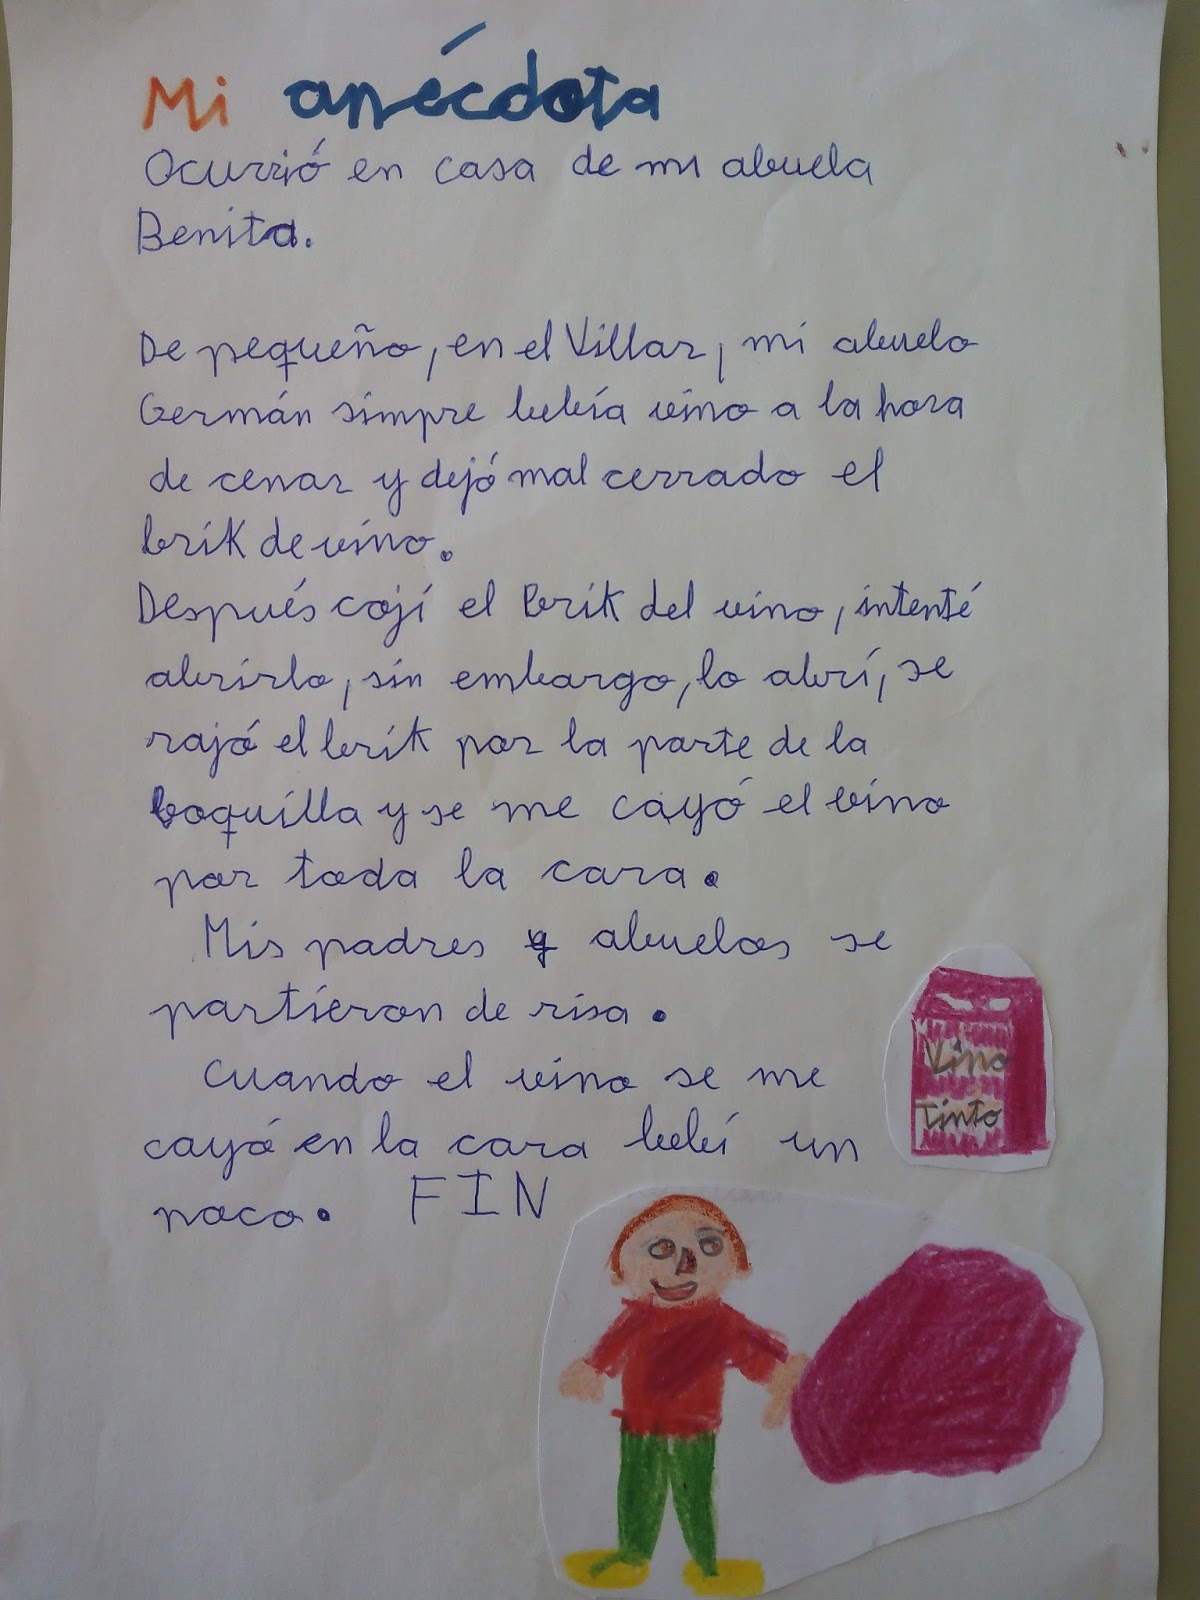 Mi anécdota
Ocurrió en casa de mi abuela
Benita.
De pequeño, en el Villar, mi abuelo
Germán simpre bebía vino a la hora
de cenar y dejó mal cerrado el
brik de vino.
Después cojí el brik del vino, intenté
abrirlo, sin embargo, lo abrí, se
rajó el brik por la parte de la
boquilla y se me cayó el vino
por toda la cara.
Mis padres y abuelos se
partieron de risa.
Cuando el vino se me
cayó en la cara bebí un
poco. FIN
Vino
Tinto